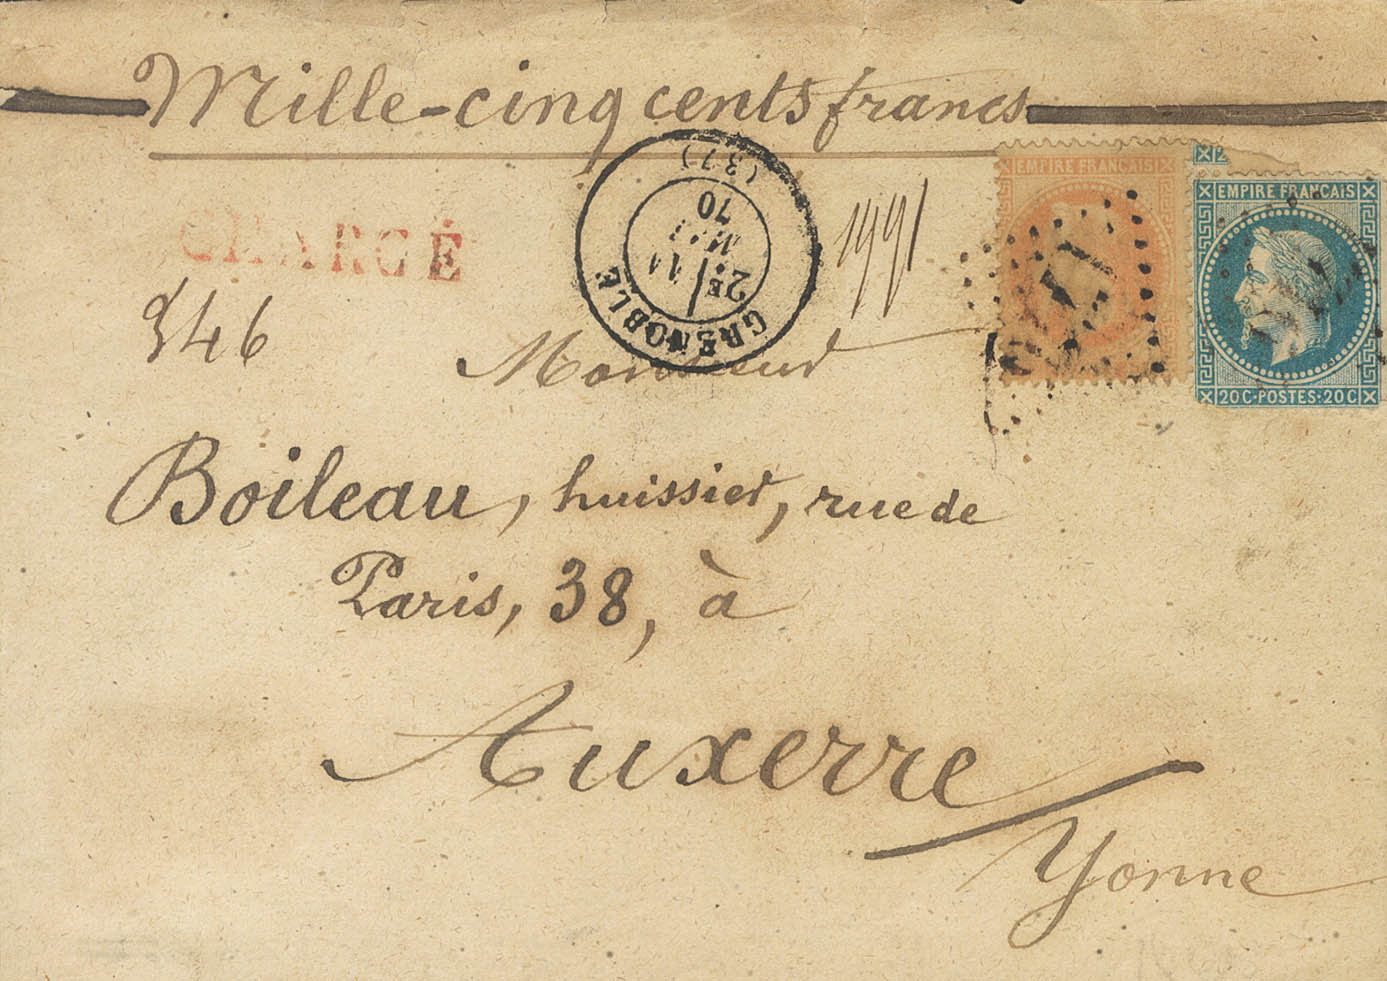 Mille-cinq cents francs
CHARGÉ
GRENOBLE
(37)
2E
11
70
1991
346
EMPIRE FRANCAIS
EMPIRE FRANCAIS
20 C·POSTES·20 C
Monsieur
Boileau, huissier, rue de
Paris, 38, à
Auxerre
Yonne